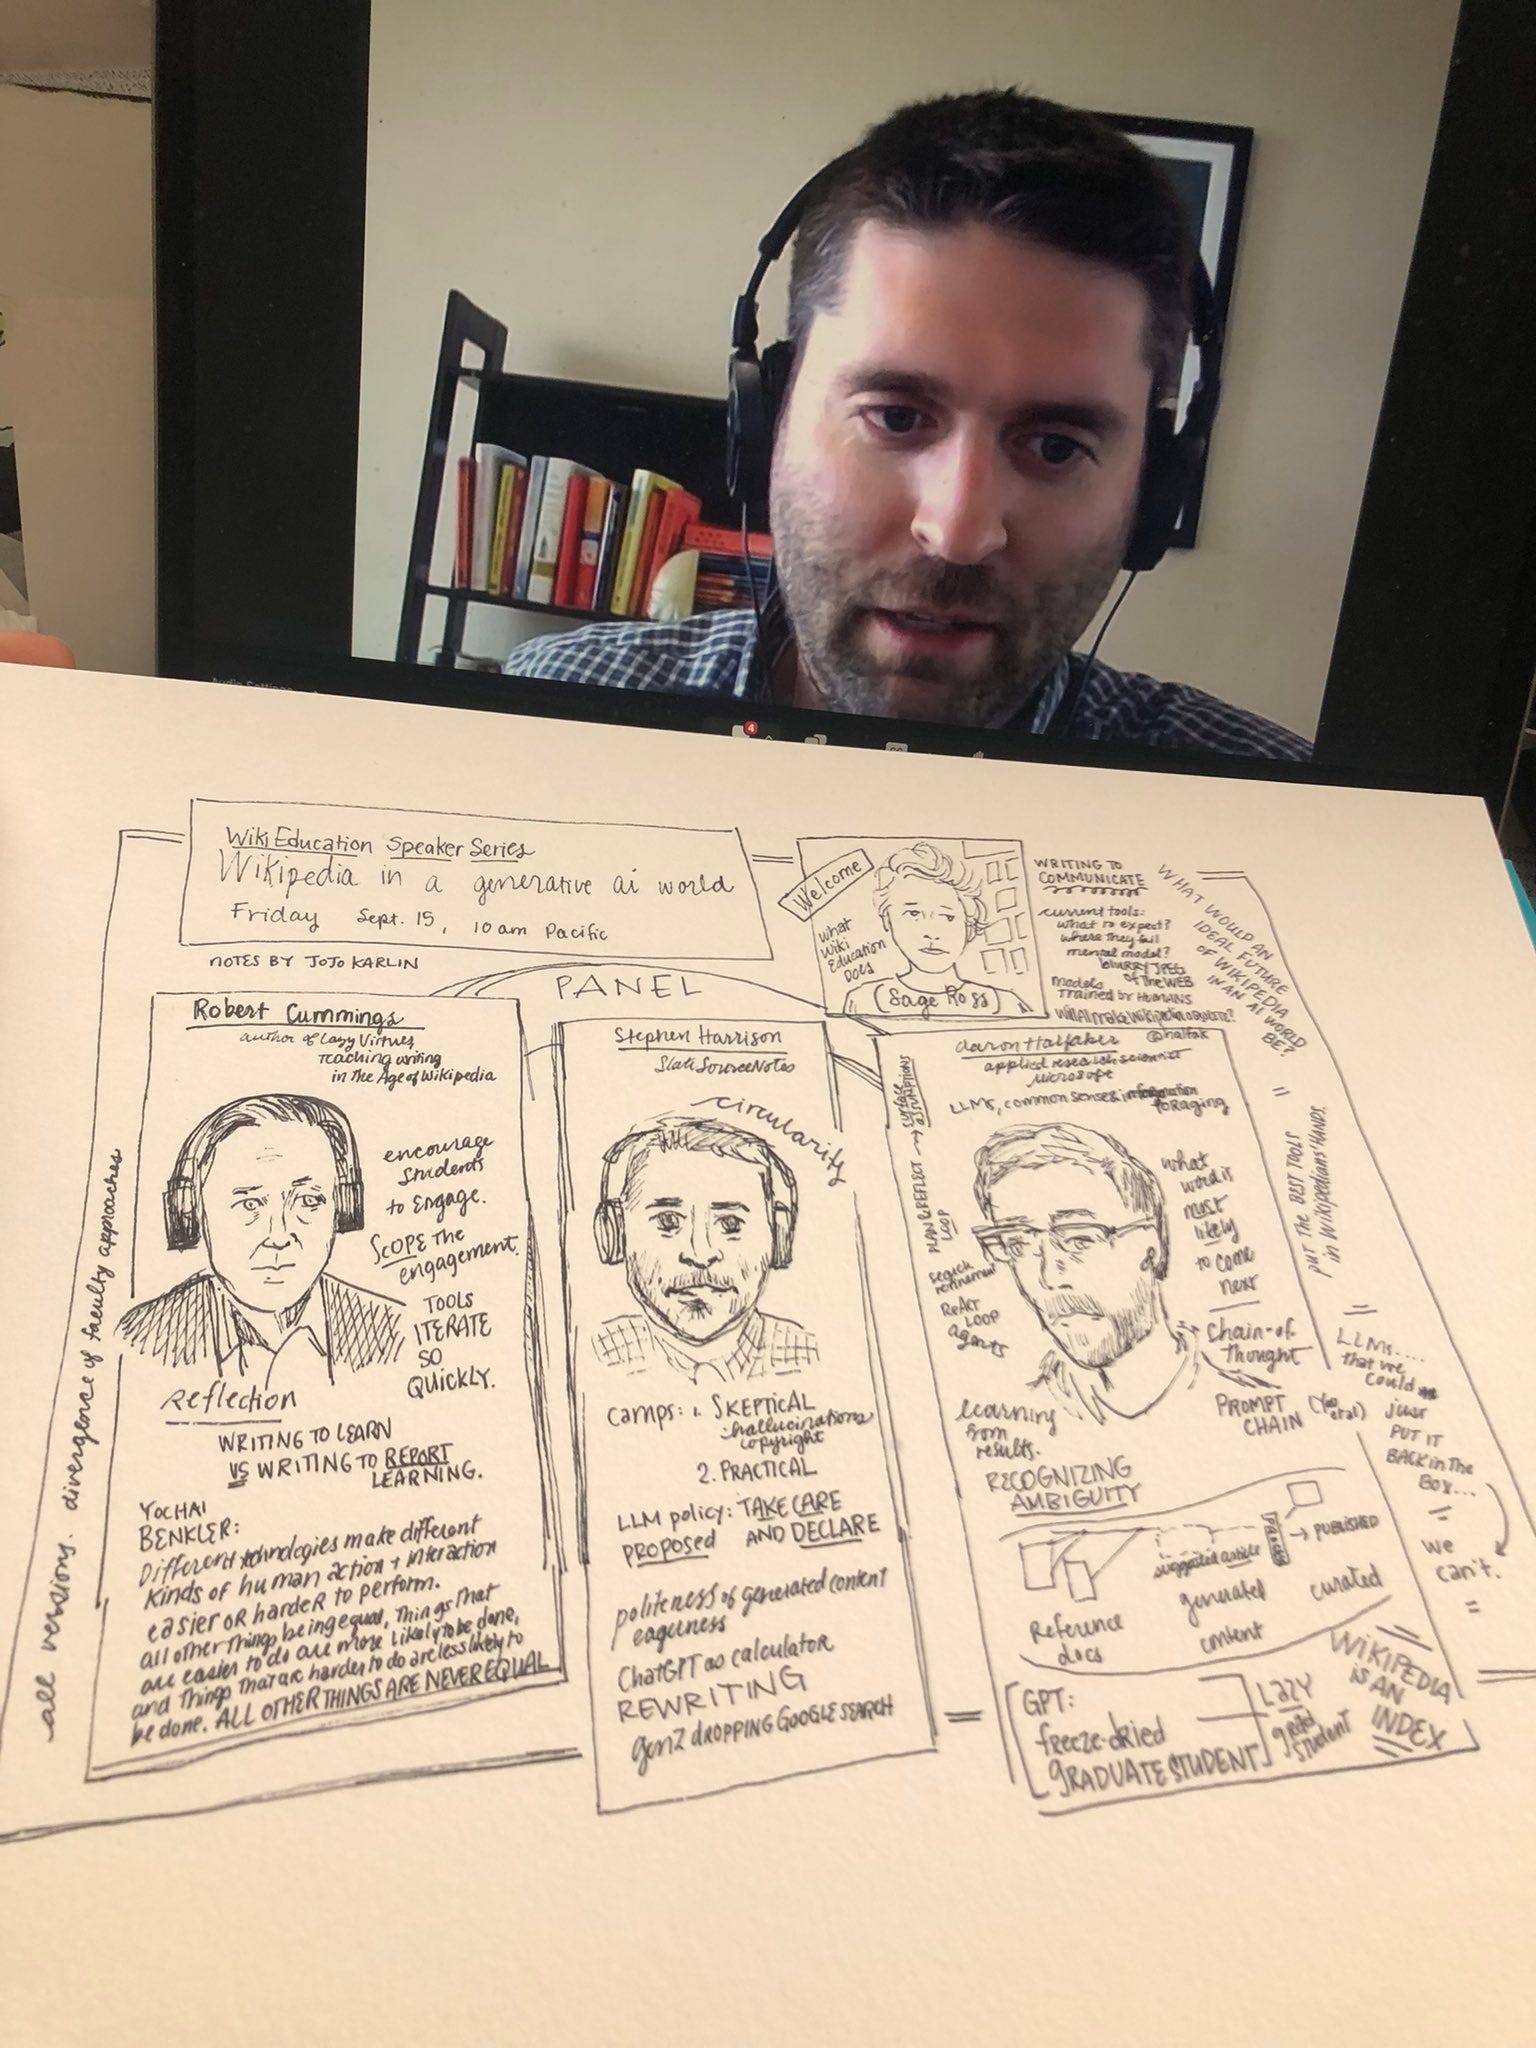 Wiki Education Speaker Series
Wikipedia in a generative ai world
Friday Sept. 15, 10am Pacific
NOTES BY JOJO KARLIN
PANEL
Welcome
what
Wiki
Education
Does
(Sage Ross)
WRITING TO
COMMUNICATE
current tools:
what to expect?
where they fail
mental model?
blurry JPEG
of the WEB
models
trained by HUMANS
will AI make Wikipedia OBSOLETE?
WHAT WOULD AN
IDEAL FUTURE
OF WIKIPEDIA
IN AN AI WORLD
BE?
=
PUT THE BEST TOOLS
in Wikipedians' HANDS.
=
LLMs....
that we
could
just
PUT IT
BACK in The
BOX...
=
we
can't.
=
WIKIPEDIA
IS AN
INDEX
all versions. divergence of faculty approaches
Robert Cummings
author of Lazy Virtues
Teaching writing
in The Age of Wikipedia
encourage
students
to engage.
SCOPE the
engagement.
TOOLS
ITERATE
SO
QUICKLY.
Reflection
WRITING TO LEARN
VS WRITING TO REPORT
LEARNING.
YOCHAI
BENKLER:
Different technologies make different
kinds of human action + interaction
easier or harder to perform.
all other things being equal, things that
are easier to do are more likely to be done,
and things that are harder to do are less likely to
be done. ALL OTHER THINGS ARE NEVER EQUAL
Stephen Harrison
Slate Source Notes
circularity
camps: 1. SKEPTICAL
hallucinations
copyright
2. PRACTICAL
LLM policy: TAKE CARE
PROPOSED AND DECLARE
politeness of generated content
eagerness
ChatGPT as calculator
REWRITING
gen Z DROPPING GOOGLE SEARCH
Aaron Halfaker @halfak
applied research scientist
Microsoft
LLMs, common sense & information
foraging
PLAN & REFLECT → SURFACE
LOOP ASSUMPTIONS
search
refinement
ReAct
LOOP
agents
what
word is
most
likely
to come
next
Chain-of-
thought
PROMPT
CHAIN
learning
from
results.
RECOGNIZING
AMBIGUITY
Reference
docs
suggested article
generated
content
→ PUBLISHED
curated
GPT:
freeze-dried
GRADUATE STUDENT
LAZY
grad
student
4